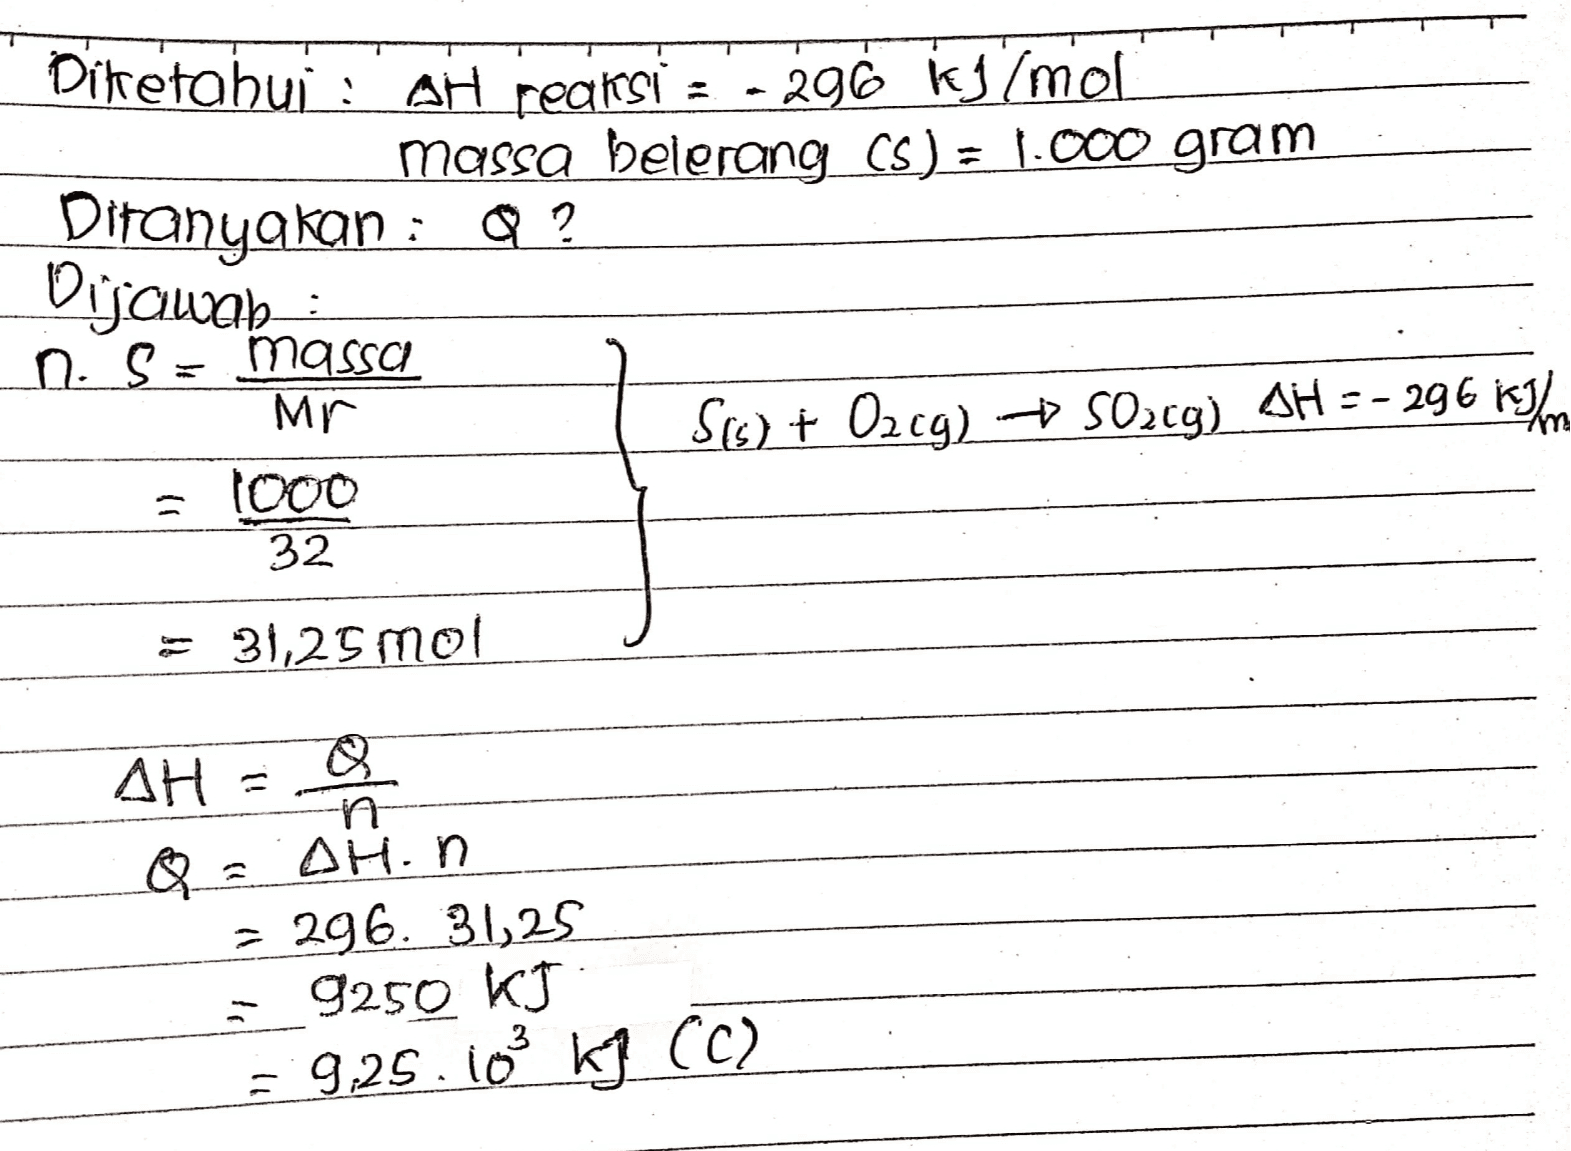 Diketahui : ΔH reaksi = - 296 kJ/mol
massa belerang (s) = 1.000 gram
Ditanyakan : Q ?
Dijawab :
n. S = massa
Mr
= 1000
32
= 31,25 mol
S(s) + O₂(g) → SO₂(g) ΔH = - 296 kJ/m
ΔH = Q
n
Q = ΔH . n
= 296. 31,25
= 9250 kJ
= 9,25 . 10³ kJ (C)